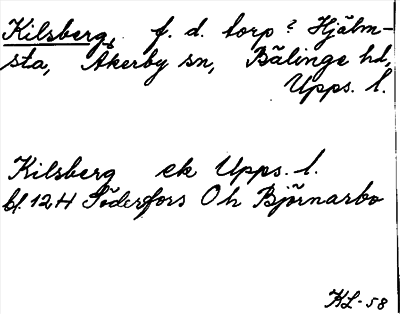 Kilsberg, f. d. torp ? Hjälm-
sta, Åkerby sn, Bälinge hd,
Upps. l.
Kilsberg ek Upps. l.
bl. 12 H Söderfors O h Björnarbo
KL-58